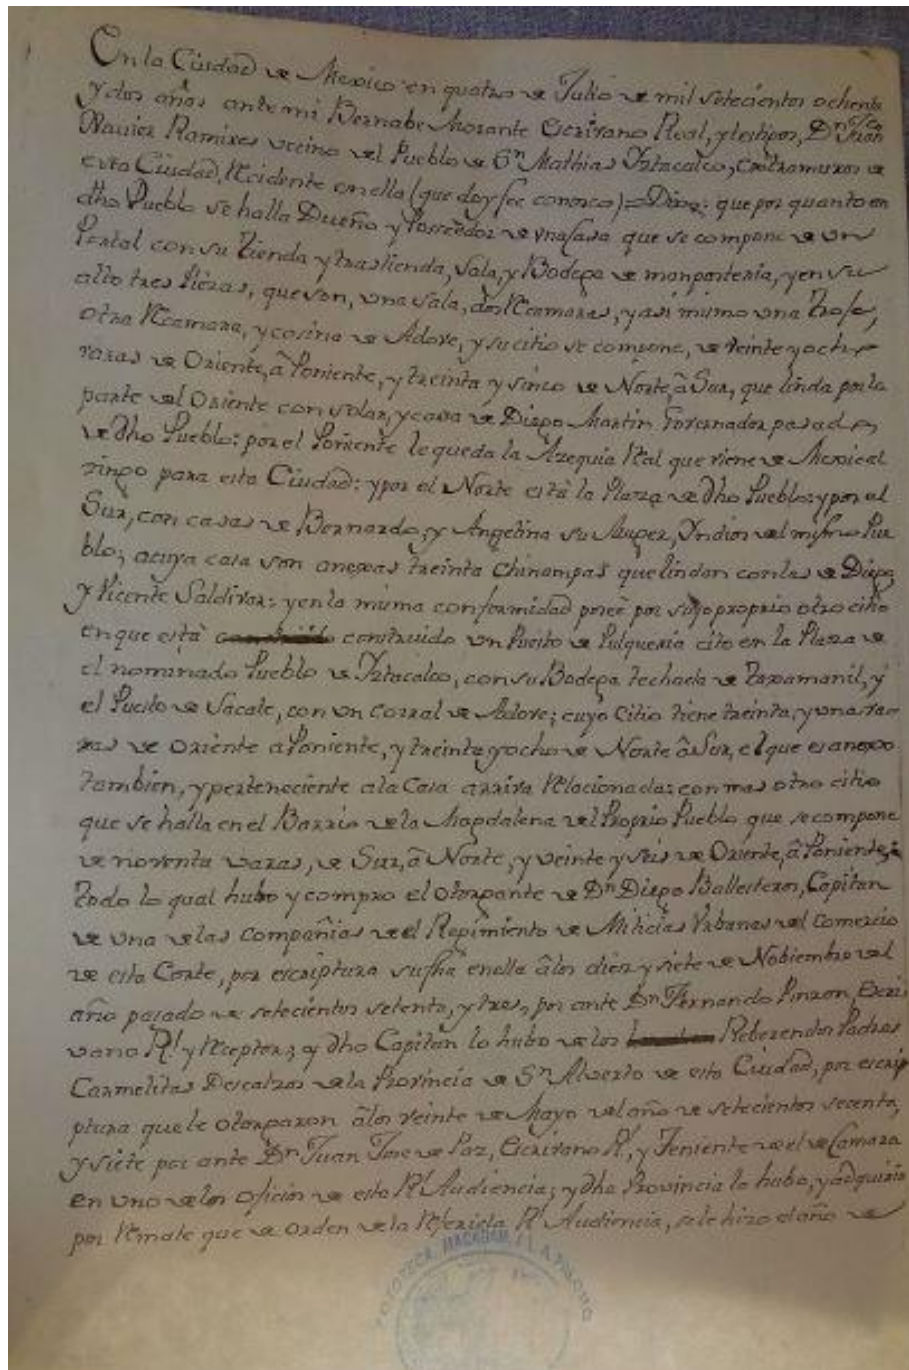 En la Ciudad de Mexico en quatro de Julio de mil setecientos ochenta
y dos años ante mi Bernabe Morante Escrivano Real, y testigos, Dn Juan
Xavier Ramires vecino del Pueblo de Sn Mathias Yztacalco, extramuros de
esta Ciudad, Recidente en ella (que doy fee conosco) = Dixo: que por quanto en
dho Pueblo se halla Dueño y Poseedor de una casa que se compone de un
Portal con su tienda y trastienda, sala, y Bodega de mamposteria, y en su
alto tres Piezas, que son, una sala, dos Recamaras, y asi mismo una
otra Recamara, y cosina de Adove, y su citio se compone, de veinte y ocho
varas de Oriente, â Poniente, y treinta y sinco de Norte, â Sur, que linda por la
parte del Oriente con solar, y casa de Diego Martin Governador pasado
de dho Pueblo: por el Poniente le queda la Azequia Rl que viene de Mexical
singo para esta Ciudad: y por el Norte está la Plaza de dho Pueblo: y por el
Sur, con casas de Bernardo, y Angelina su Muger, Yndios del mismo Pue
blo; a cuya casa son anexas treinta Chinampas que lindan con las de Diego,
y Vicente Saldivar: y en la misma conformidad poseé por suyo proprio otro citio
en que está construido un Puesto de Pulqueria cito en la Plaza de
el nominado Pueblo de Yztacalco, con su Bodega techada de taxamanil, y
el Puesto de Sacate, con un corral de Adove; cuyo Citio tiene treinta, y una va
ras de Oriente a Poniente, y treinta y ocho de Norte â Sur, el que es anexo
tambien, y perteneciente a la Casa arriva Relacionada: con mas otro citio
que se halla en el Barrio de la Magdalena del Proprio Pueblo que se compone
de noventa varas, de Sur, â Norte, y veinte y seis de Oriente, â Poniente,
todo lo qual hubo y compro el otorgante de Dn Diego Ballesteros, Capitan
de una de las compañias de el Regimiento de Milicias Urbanas del Comercio
de esta Corte, por escriptura su fha en ella â los diez y siete de Nobiembre del
año pasado de setecientos setenta, y tres, por ante Dn Fernando Pinzon, Escri
vano Rl y Receptor; y dho Capitan lo hubo de los Reberendos Padres
Carmelitas Descalzos de la Provincia de Sn Alverto de esta Ciudad, por escrip
ptura que le otorgaron â los veinte de Mayo del año de setecientos secenta,
y siete por ante Dn Juan Jose de Paz, Escrivano Rl, y Teniente de el de Camara
en uno de los oficios de esta Rl Audiencia; y dha Provincia lo hubo, y adquirio
por Remate que de orden de la Referida Rl Audiencia, se le hizo el año de